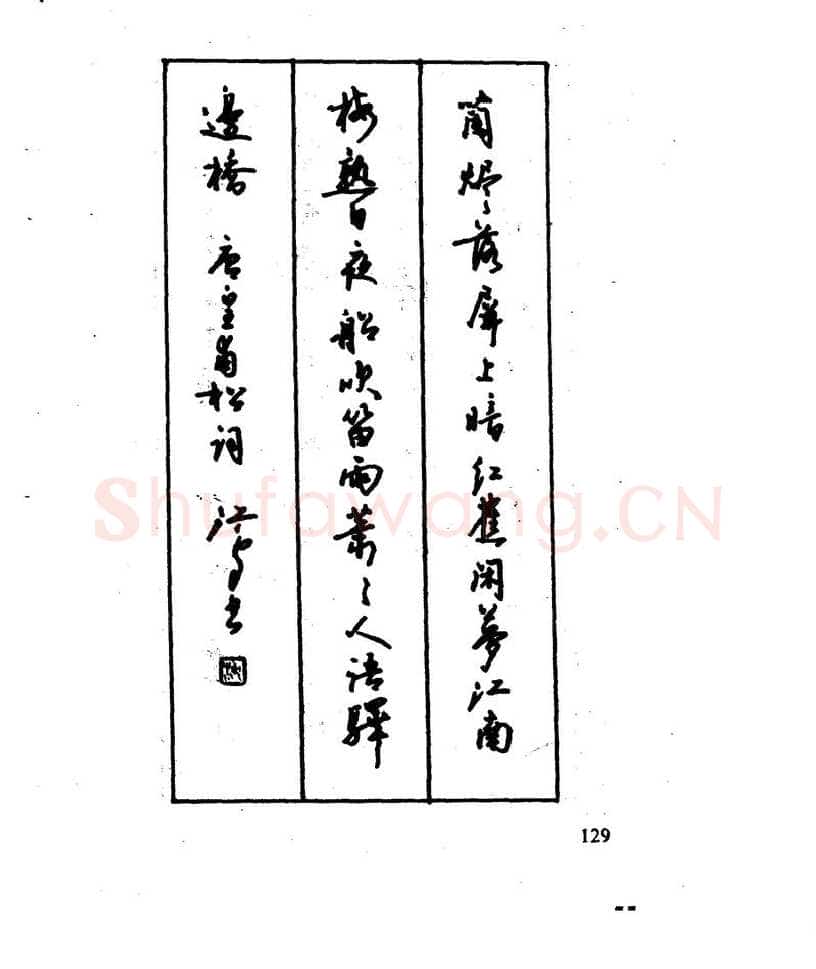 蘭烬落屏上暗红蕉闲夢江南
梅熟日夜船吹笛雨蕭々人语驛
邊橋 唐皇甫松词 书
Shufawang.CN
129
--